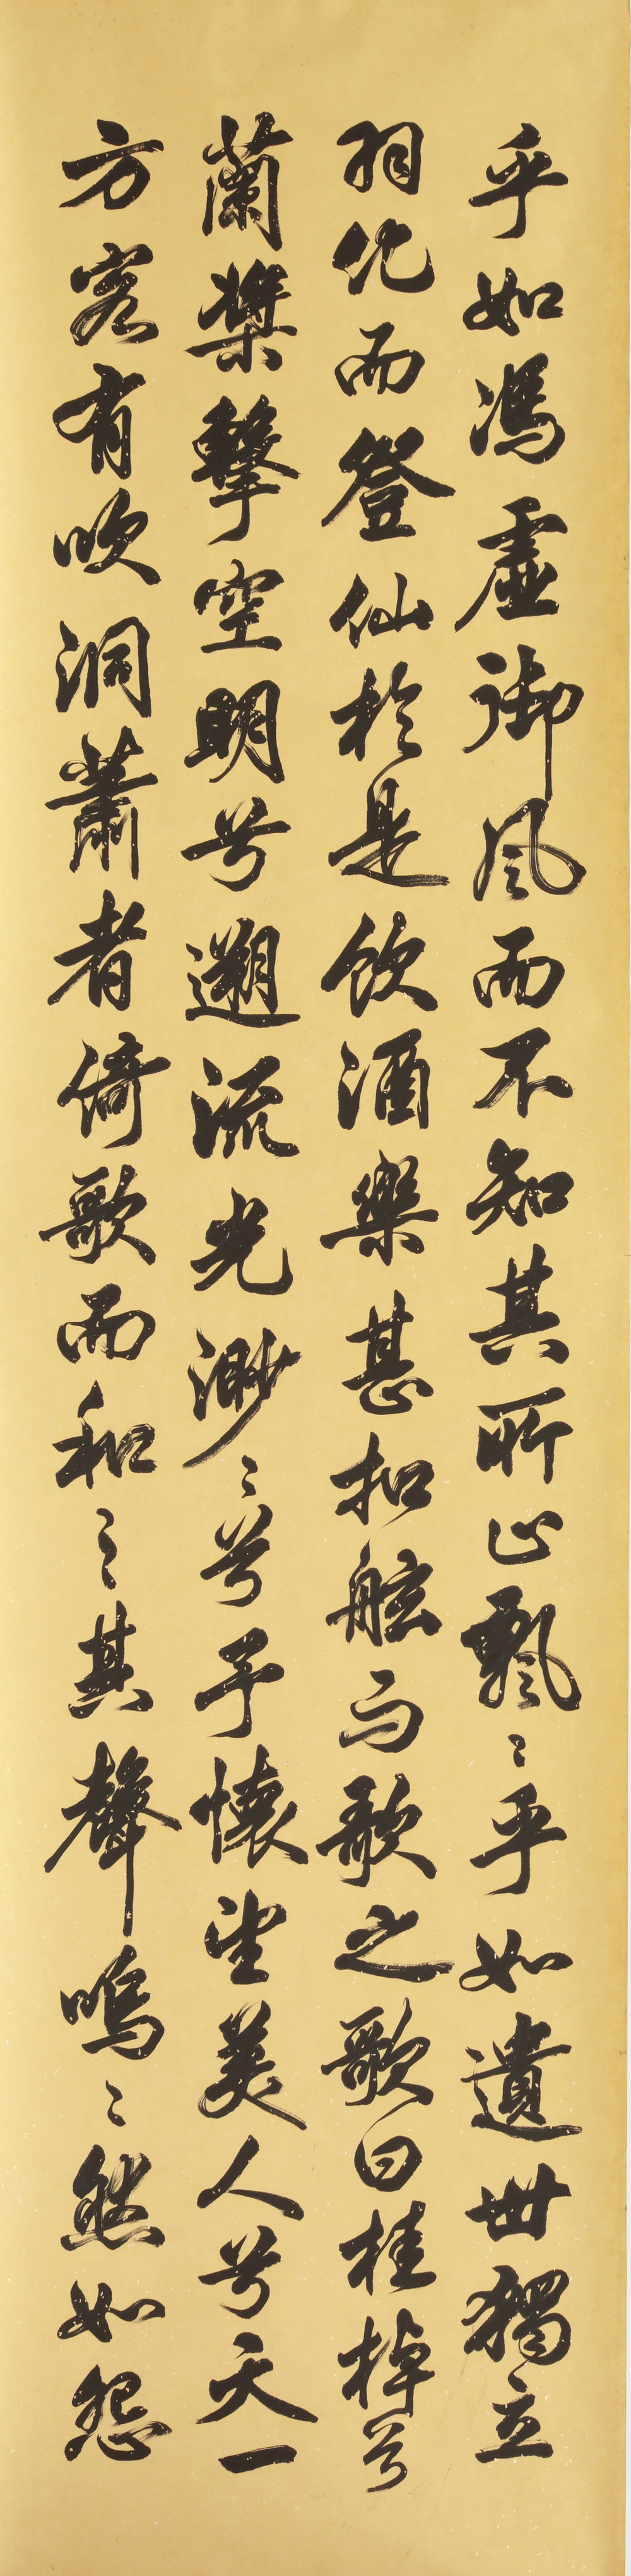 乎如馮虛御風而不知其所止飄〻乎如遺世獨立
羽化而登仙於是飲酒樂甚扣舷而歌之歌曰桂棹兮
蘭槳擊空明兮遡流光渺〻兮予懷望美人兮天一
方客有吹洞蕭者倚歌而和之其聲嗚〻然如怨